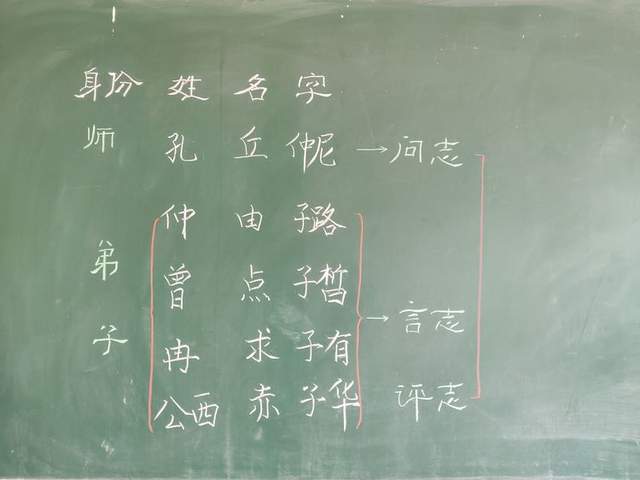 身份 姓 名 字
师 孔 丘 仲尼 →问志
仲 由 子路
弟 曾 点 子皙 →言志
子 冉 求 子有
公西 赤 子华 评志